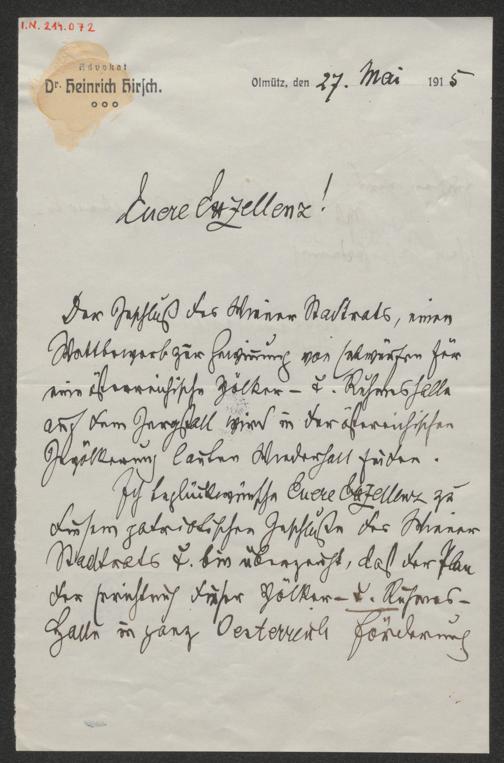 I.N. 214.072
Advokat
Dr. Heinrich Hirsch.
Olmütz, den 27. Mai 1915
Euere Exzellenz!
Der Beschluß des Wiener Stadtrats, einen
Wettbewerb zur Gewinnung von Entwürfen für
eine österreichische Völker- u. Ruhmeshalle
auf dem Bergstall wird in der österreichischen
Bevölkerung lauten Wiederhall finden.
Ich beglückwünsche Euere Exzellenz zu
diesem patriotischen Beschluße des Wiener
Stadtrats u. bin überzeugt, daß der Plan
der Errichtung dieser Völker- u. Ruhmes-
halle in ganz Oesterreich Förderung